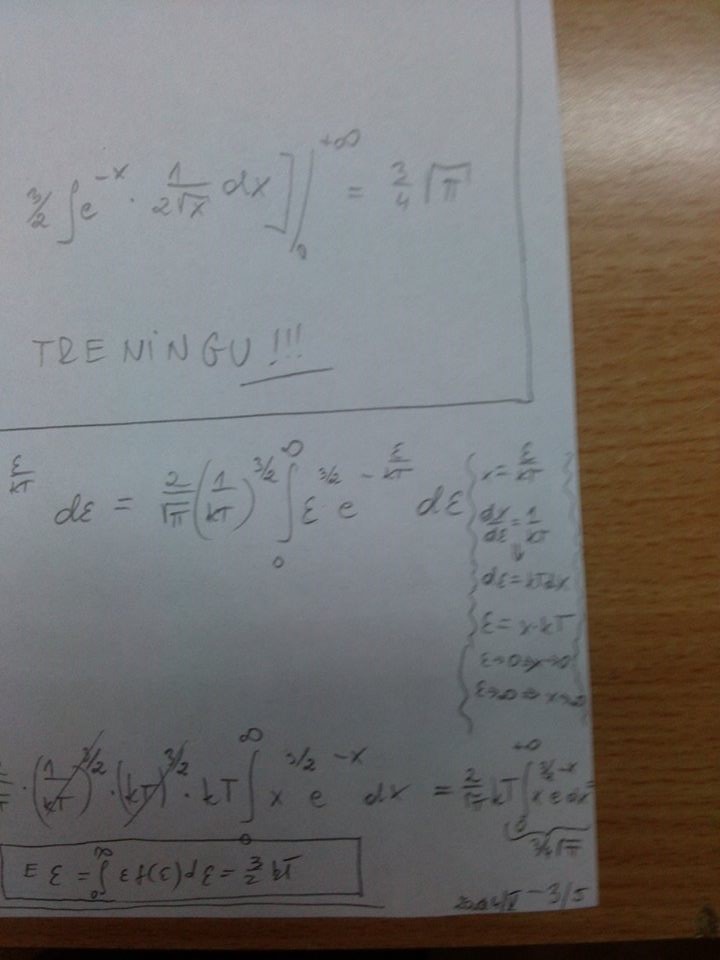 3/2 ∫ e^{-x} · 1/(2√x) dx ] |_0^{+∞} = 3/4 √π
TRENINGU!!!
ε/kT dε = 2/√π (1/kT)^{3/2} ∫_0^∞ ε^{3/2} e^{-ε/kT} dε
x = ε/kT
dx/dε = 1/kT
⇓
dε = kTdx
ε = x·kT
ε→0 ⇒ x→0
ε→∞ ⇒ x→∞
· (1/kT)^{3/2} · (kT)^{3/2} · kT ∫_0^∞ x^{3/2} e^{-x} dx = 2/√π kT ∫_0^{+∞} x^{3/2} e^{-x} dx =
3/4 √π
E ε = ∫_0^∞ ε f(ε) dε = 3/2 kT
- 3/5